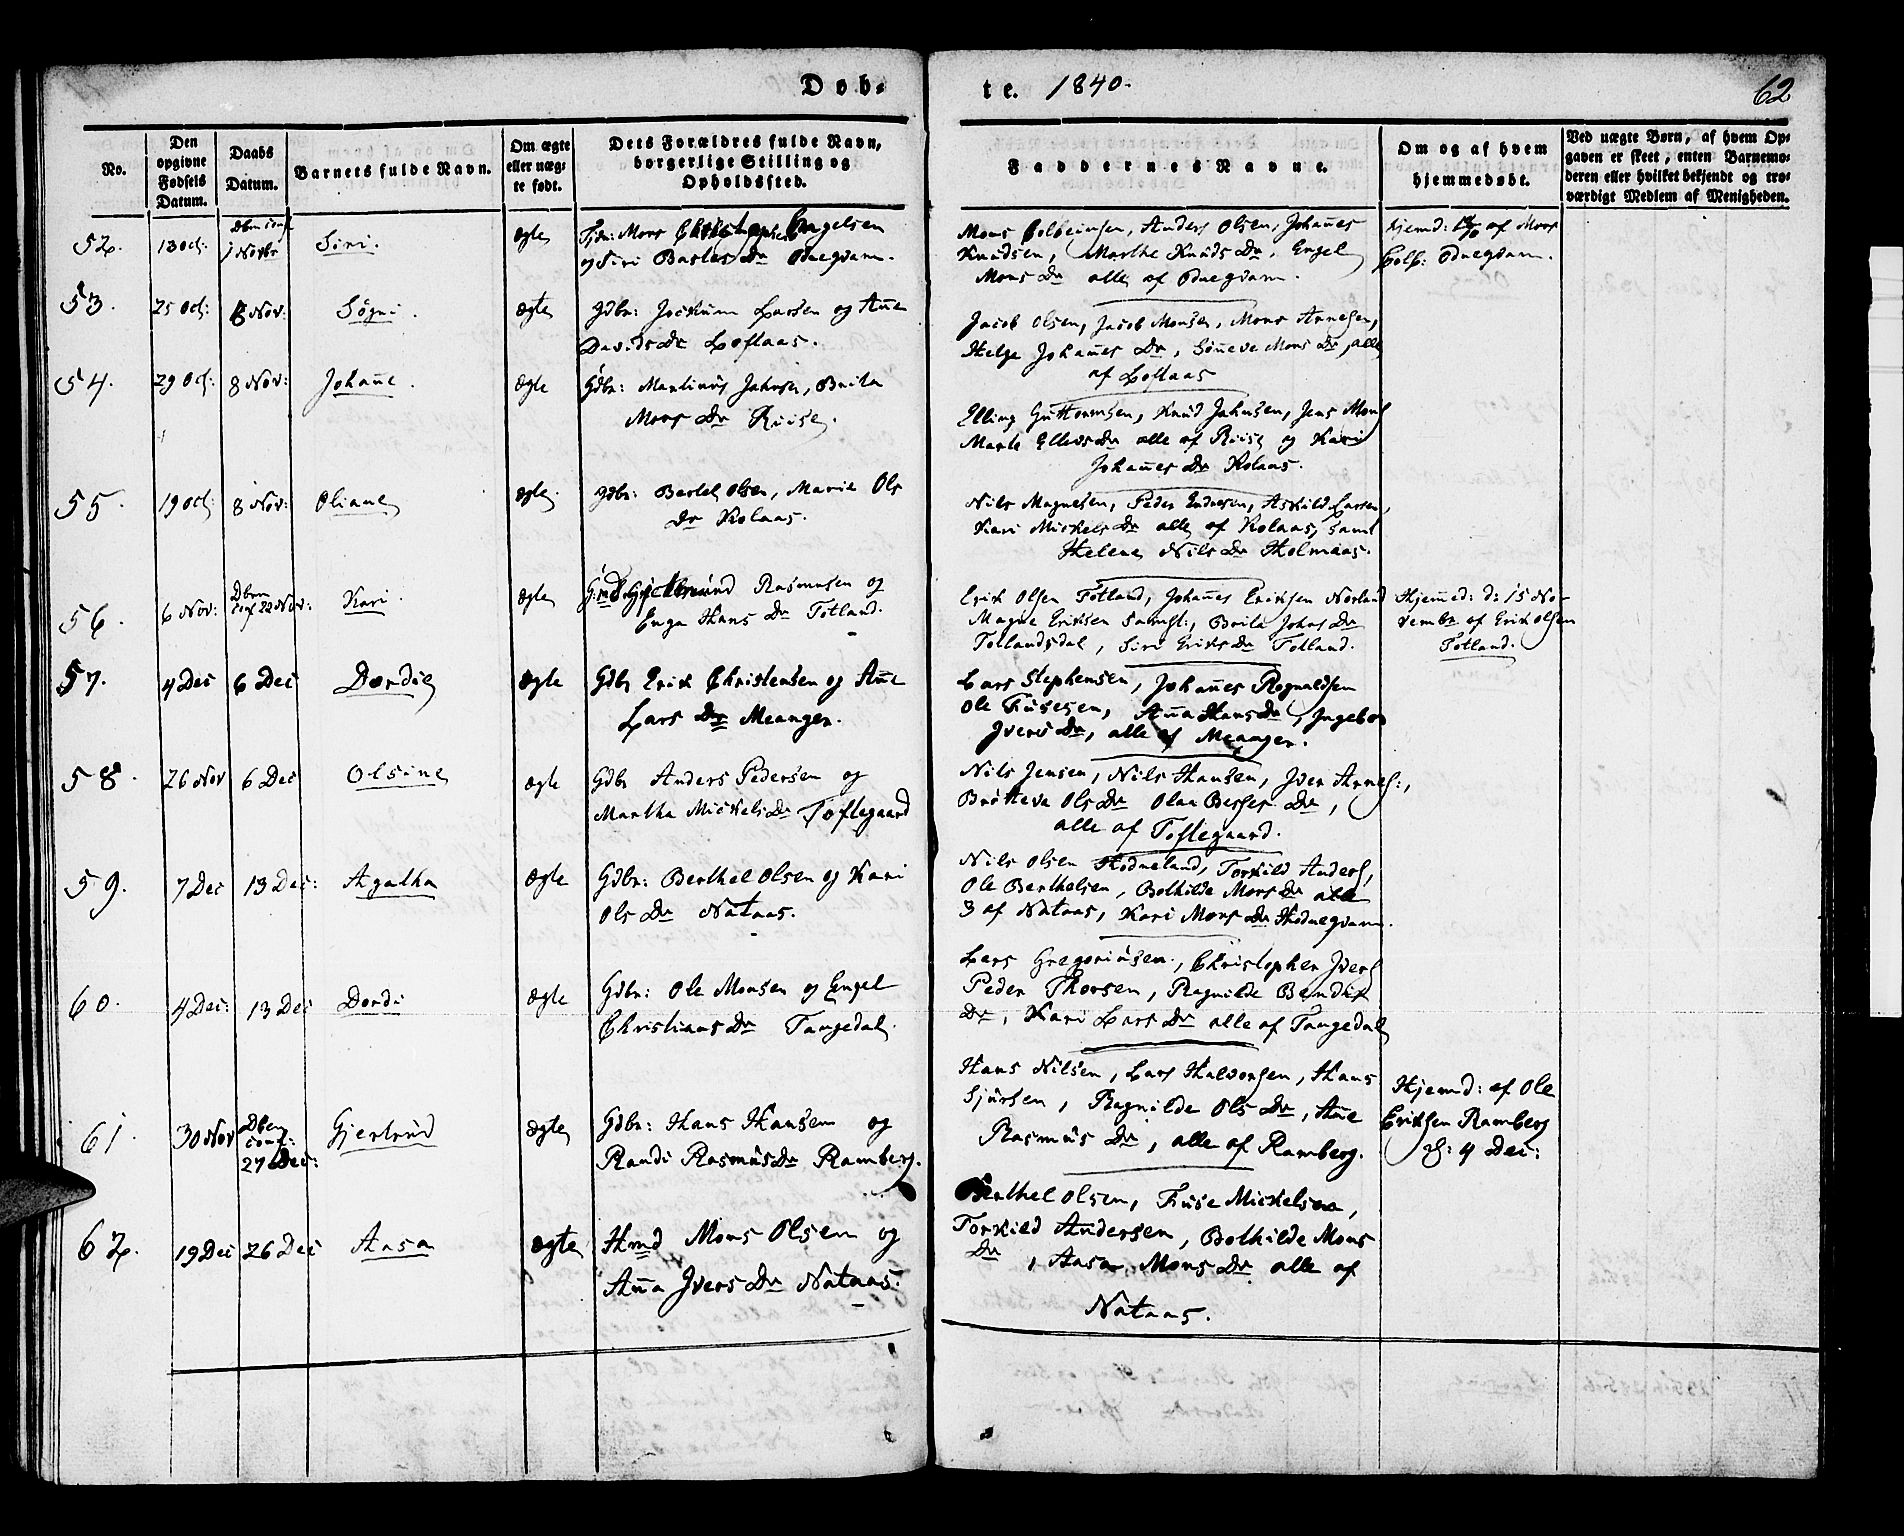 Døb-
te. 1840.
62
No.
Den opgivne Fødsels Datum.
Daabs Datum.
Barnets fulde Navn.
Om ægte eller uægte født.
Dets Forældres fulde Navn,
borgerlige Stilling og
Opholdssted.
Faddernes Navne.
Om og af hvem
hjemmedøbt.
Ved uægte Børn, af hvem Op-
gaven er skeet, enten Barnemo-
deren eller hvilket bekjendt og tro-
værdigt Medlem af Menigheden.
52. 13 Oct: Dben conf 1 Novbr Siri. ægte Mons Christopher Engelsen
og Siri Dr
Mons Anders Olsen, Johañes
Knudsen, Marthe Knuds Dr, Engel
Mons Dr alle af
hjemd: af Mons
53. 25 Oct: 8 Nov: Sögni. ægte Gdbr: Jochum Larsen og Añe
Davids Dr Loftaas.
Jacob Olsen, Jacob Monsen, Mons Arnesen,
Helge Johañes Dr, Söñeve Mons Dr, alle
af Loftaas
54. 29 Oct: 8 Nov: Johañe. ægte Gdbr: Martinus Jahnsen, Brita
Mons Dr Riise.
Elling Guttormsen, Knud Jahnsen, Jens Mons
Marte Dr alle af Riise og Kari
Johañes Dr Rolaas.
55. 19 Oct: 8 Nov: Oliane ægte Gdbr: Bertel Olsen, Marie Ols
Dr Rolaas.
Nils Magnesen, Peder Endresen, Askild Larsen,
Kari Mickels Dr alle af Rolaas, samt
Helene Nils Dr Holmaas.
56. 6 Nov: Dben conf 22 Nov: Kari. ægte Rasmusen og
Hans Dr Totland.
Erik Olsen Totland, Johañes Eriksen Norland
Magne Eriksen Brita Johns Dr
Totlandsdal, Siri Eriks Dr Totland.
Hjemmed: d: 15 No-
vembr af Erik Olsen
Totland.
57. 4 Dec 6 Dec Dordie ægte Gdbr Erik Christensen og Añe
Lars Dr Meanger.
Lars Stephensen, Johañes Rognaldsen
Ole Fusesen, Añna Hans Dr, Ingebor
Ivers Dr, alle af Meanger.
58. 26 Nov 6 Dec Olsine ægte Gdbr Anders Pedersen og
Martha Mickels Dr Toftegaard
Nils Jensen, Nils Hansen, Iver Arnes:,
Brötteva Ols Dr Olaa Berges Dr,
alle af Toftegaard.
59. 7 Dec 13 Dec: Agatha ægte Gdbr: Berthel Olsen og Kari
Ols Dr Nataas.
Nils Olsen Hodneland, Torkild Anders,
Ole Berthelsen, Bothilde Mons Dr alle
3 af Nataas, Kari Mons Dr
60. 4 Dec: 13 Dec Dordi ægte Gdbr: Ole Monsen og Engel
Christians Dr Tangedal.
Lars Gregoriusen, Christopher Ivers
Peder Thorsen, Ragnilde Bendix
Dr, Kari Lars Dr alle af Tangedal
61. 30 Nov Dben conf: 27 Dec: Gjertrud ægte Gdbr: Hans Hansen og
Randi Rasmus Dr Ramberg.
Hans Nilsen, Lars Halvorsen, Hans
Sjursen, Ragnilde Ols Dr, Añe
Rasmus Dr, alle af Ramberg.
Hjemd: af Ole
Eriksen Ramberg
d: 4 Dec:
62. 19 Dec 26 Dec Aasa ægte Hmd Mons Olsen og
Añna Ivers Dr Nataas.
Berthel Olsen, Fuse Mickelsen,
Torkild Andersen, Bothilde Mons
Dr, Aasa Mons Dr alle af
Nataas.